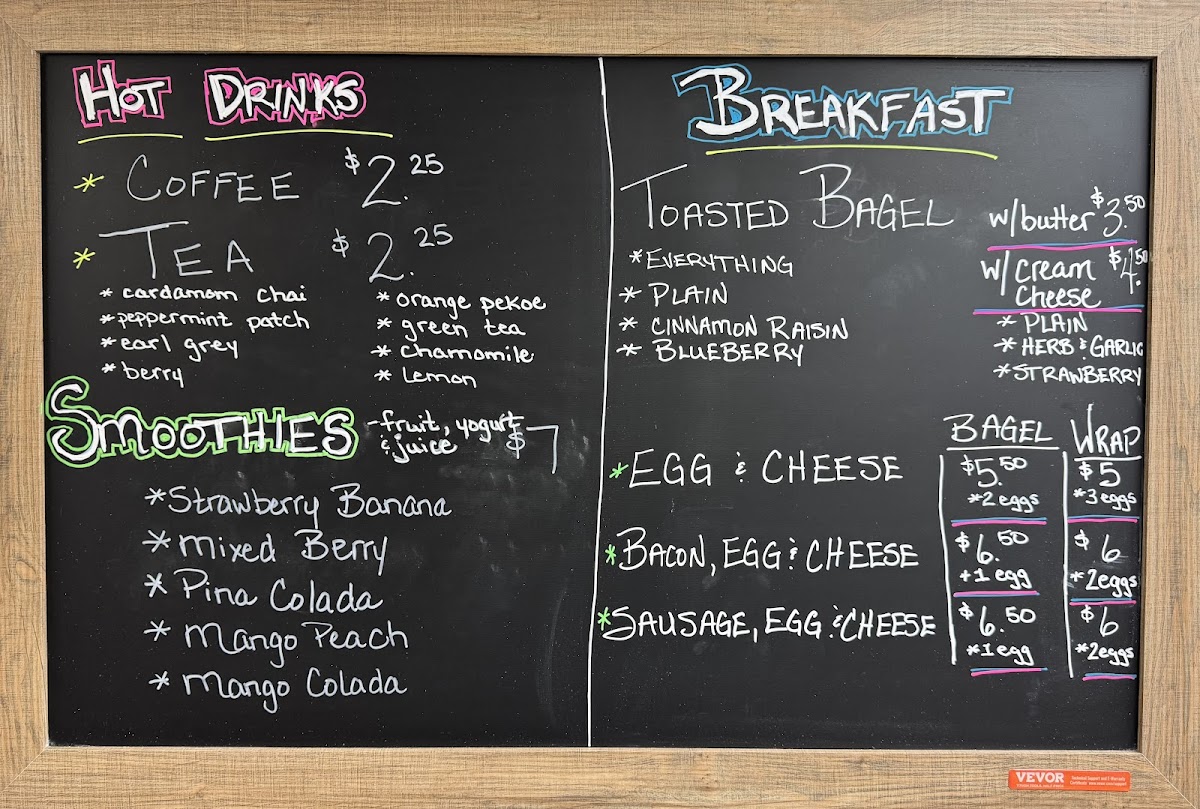 HOT DRINKS
* COFFEE $2.25
* TEA $2.25
* cardamom chai
* peppermint patch
* earl grey
* berry
* orange pekoe
* green tea
* chamomile
* Lemon
SMOOTHIES
-fruit, yogurt
& juice $7
*Strawberry Banana
*Mixed Berry
* Pina Colada
* Mango Peach
* Mango Colada
BREAKFAST
TOASTED BAGEL
*EVERYTHING
* PLAIN
* CINNAMON RAISIN
* BLUEBERRY
w/butter $3.50
w/ cream $4.50
cheese
* PLAIN
* HERB & GARLIC
*STRAWBERRY
BAGEL WRAP
*EGG & CHEESE $5.50 $5
*2 eggs *3 eggs
*BACON, EGG & CHEESE $6.50 $6
+1 egg *2 eggs
*SAUSAGE, EGG & CHEESE $6.50 $6
*1 egg *2 eggs
VEVOR